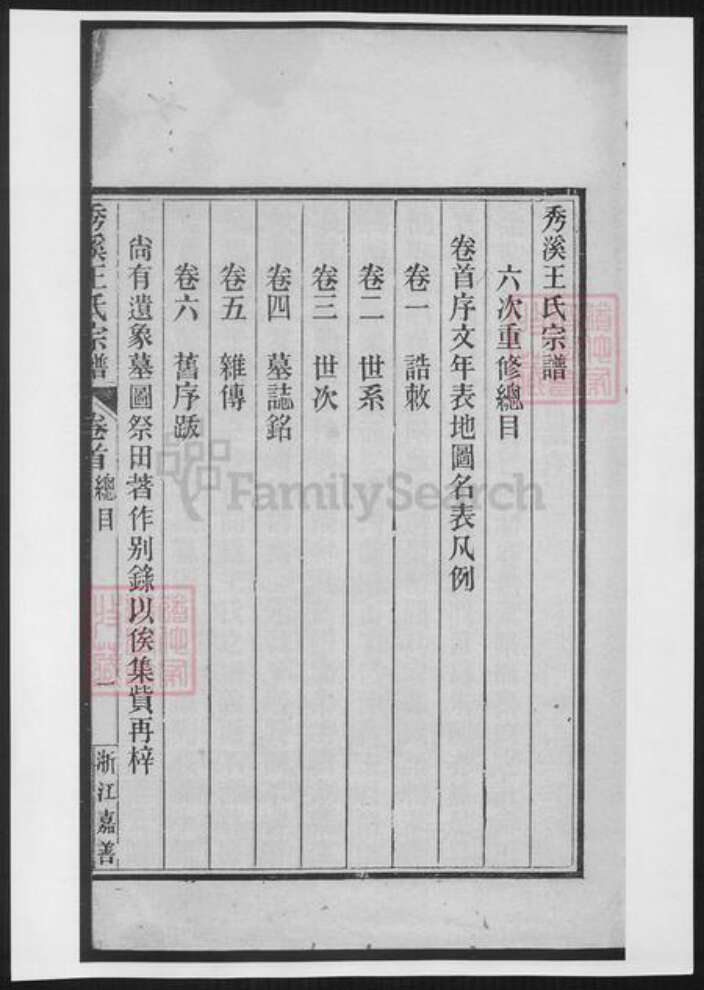 秀溪王氏宗譜
六次重修總目
卷首序文年表地圖名表凡例
卷一　誥敕
卷二　世系
卷三　世次
卷四　墓誌銘
卷五　雜傳
卷六　舊序跋
尙有遺象墓圖祭田著作別錄以俟集貲再梓
秀溪王氏宗譜
卷首
總目
一
浙江嘉善
FamilySearch